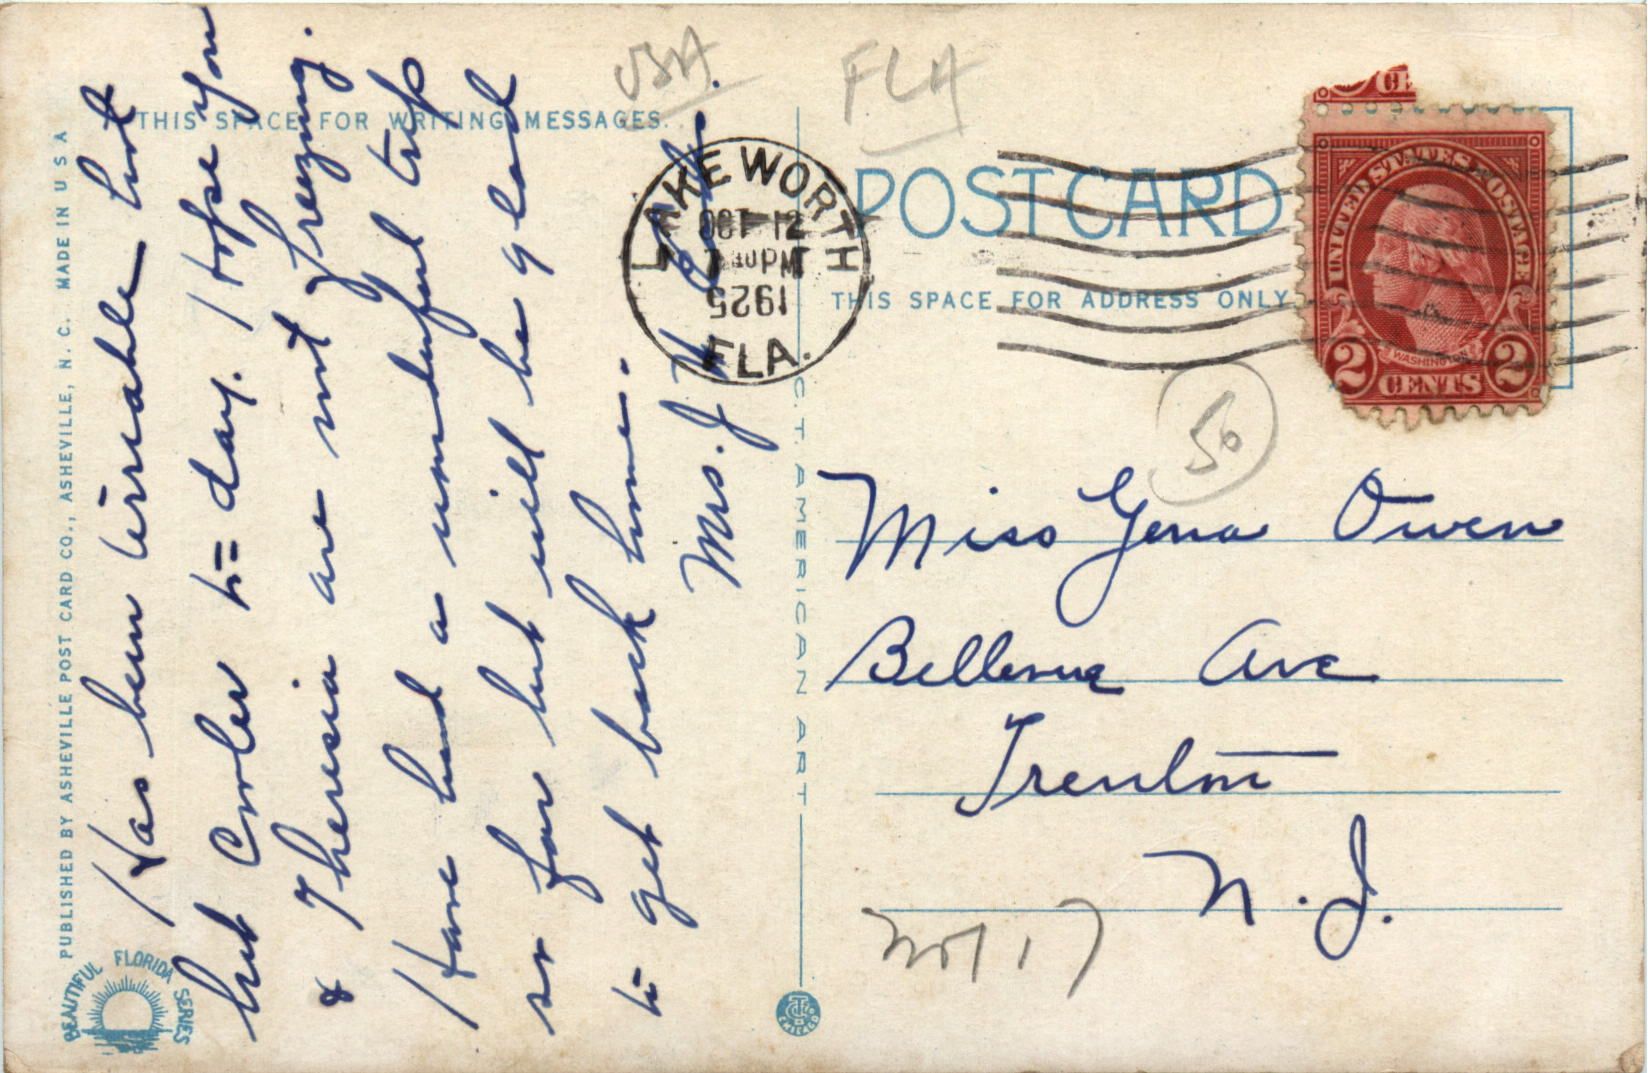 Has been terriable hot
but cooler to-day. Hope you
& Theresia are not freezing.
Have had a wonderful trip
so far but will be glad
to get back home.
Mrs. J
THIS SPACE FOR WRITING MESSAGES.
PUBLISHED BY ASHEVILLE POST CARD CO., ASHEVILLE, N. C. MADE IN U S A
BEAUTIFUL FLORIDA SERIES
USA
FLA
LAKE WORTH
OCT 12
1925
FLA.
POST CARD
THIS SPACE FOR ADDRESS ONLY
UNITED STATES POSTAGE
WASHINGTON
2 CENTS 2
50
C. T. AMERICAN ART
CHICAGO
Miss Gena Owen
Bellevue Ave
Trenton
N. J.